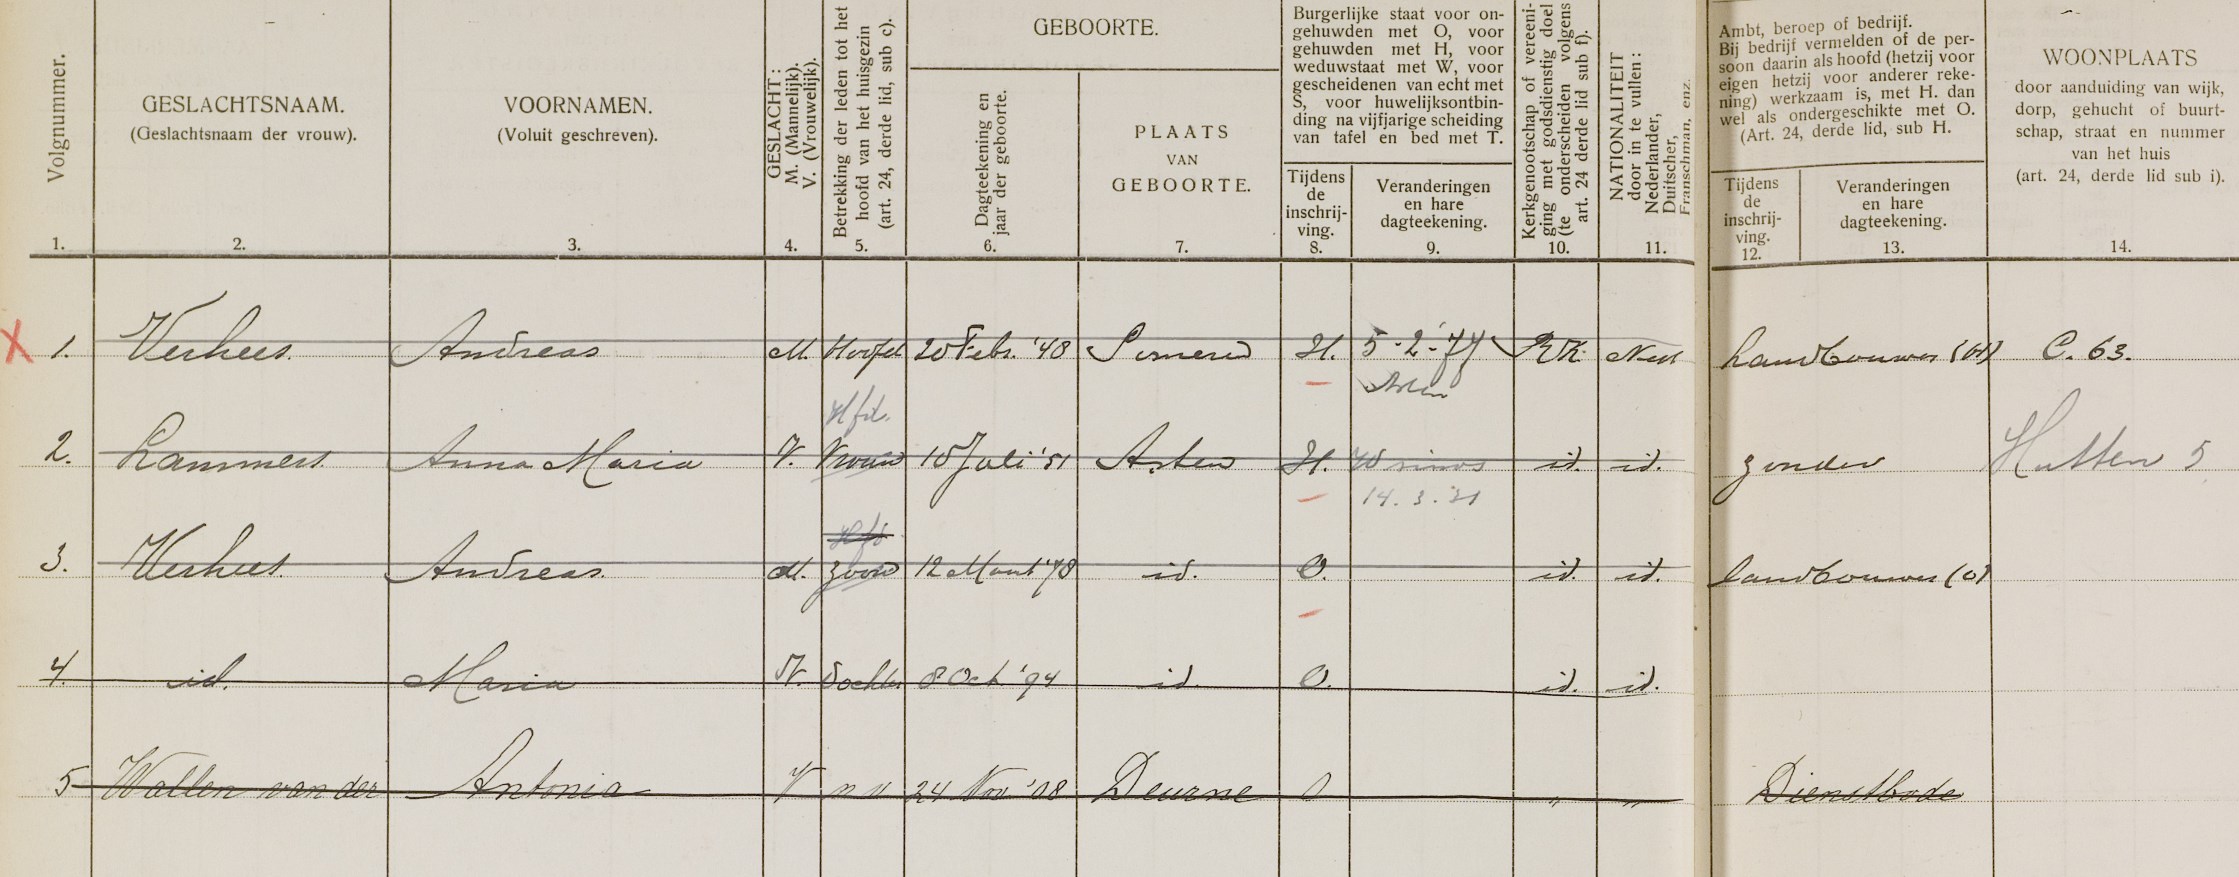 Volgnummer.
1.
GESLACHTSNAAM.
(Geslachtsnaam der vrouw).
2.
VOORNAMEN.
(Voluit geschreven).
3.
GESLACHT:
M. (Mannelijk).
V. (Vrouwelijk).
4.
Betrekking der leden tot het
hoofd van het huisgezin
(art. 24, derde lid, sub c).
5.
GEBOORTE.
Dagteekening en
jaar der geboorte.
6.
PLAATS
VAN
GEBOORTE.
7.
Burgerlijke staat voor on-
gehuwden met O, voor
gehuwden met H, voor
weduwstaat met W, voor
gescheidenen van echt met
S, voor huwelijksontbin-
ding na vijfjarige scheiding
van tafel en bed met T.
Tijdens
de
inschrij-
ving.
8.
Veranderingen
en hare
dagteekening.
9.
Kerkgenootschap of vereeni-
ging met godsdienstig doel
(te onderscheiden volgens
art. 24 derde lid sub f).
10.
NATIONALITEIT
door in te vullen:
Nederlander,
Duitscher,
Franschman, enz.
11.
Ambt, beroep of bedrijf.
Bij bedrijf vermelden of de per-
soon daarin als hoofd (hetzij voor
eigen hetzij voor anderer reke-
ning) werkzaam is, met H. dan
wel als ondergeschikte met O.
(Art. 24, derde lid, sub H.
Tijdens
de
inschrij-
ving.
12.
Veranderingen
en hare
dagteekening.
13.
WOONPLAATS
door aanduiding van wijk,
dorp, gehucht of buurt-
schap, straat en nummer
van het huis
(art. 24, derde lid sub i).
14.
X 1. Verhees. Andreas M. Hoofd 20 Febr. '48 Someren H. 5-2-'77 R.K. Ned landbouwer (H) C. 63.
Asten
Hfd.
2. Lammers Anna Maria V. Vrouw 10 Juli '51 Asten H. id. id. zonder Hutten 5
14.3.'31
Hfd
3. Verhees. Andreas. M. zoon 12 Maart '78 id. O. id. id. landbouwer (O)
4. id. Maria V. dochter 8 Oct. '94 id. O. id. id.
5 Wallen van der Antonia V 24 Nov '08 Deurne O " " Dienstbode